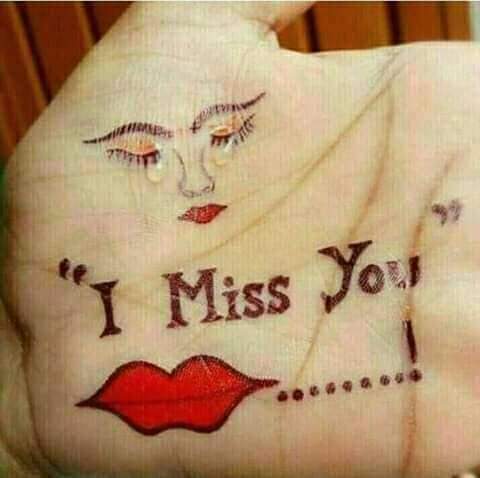 "I Miss You"
! ........